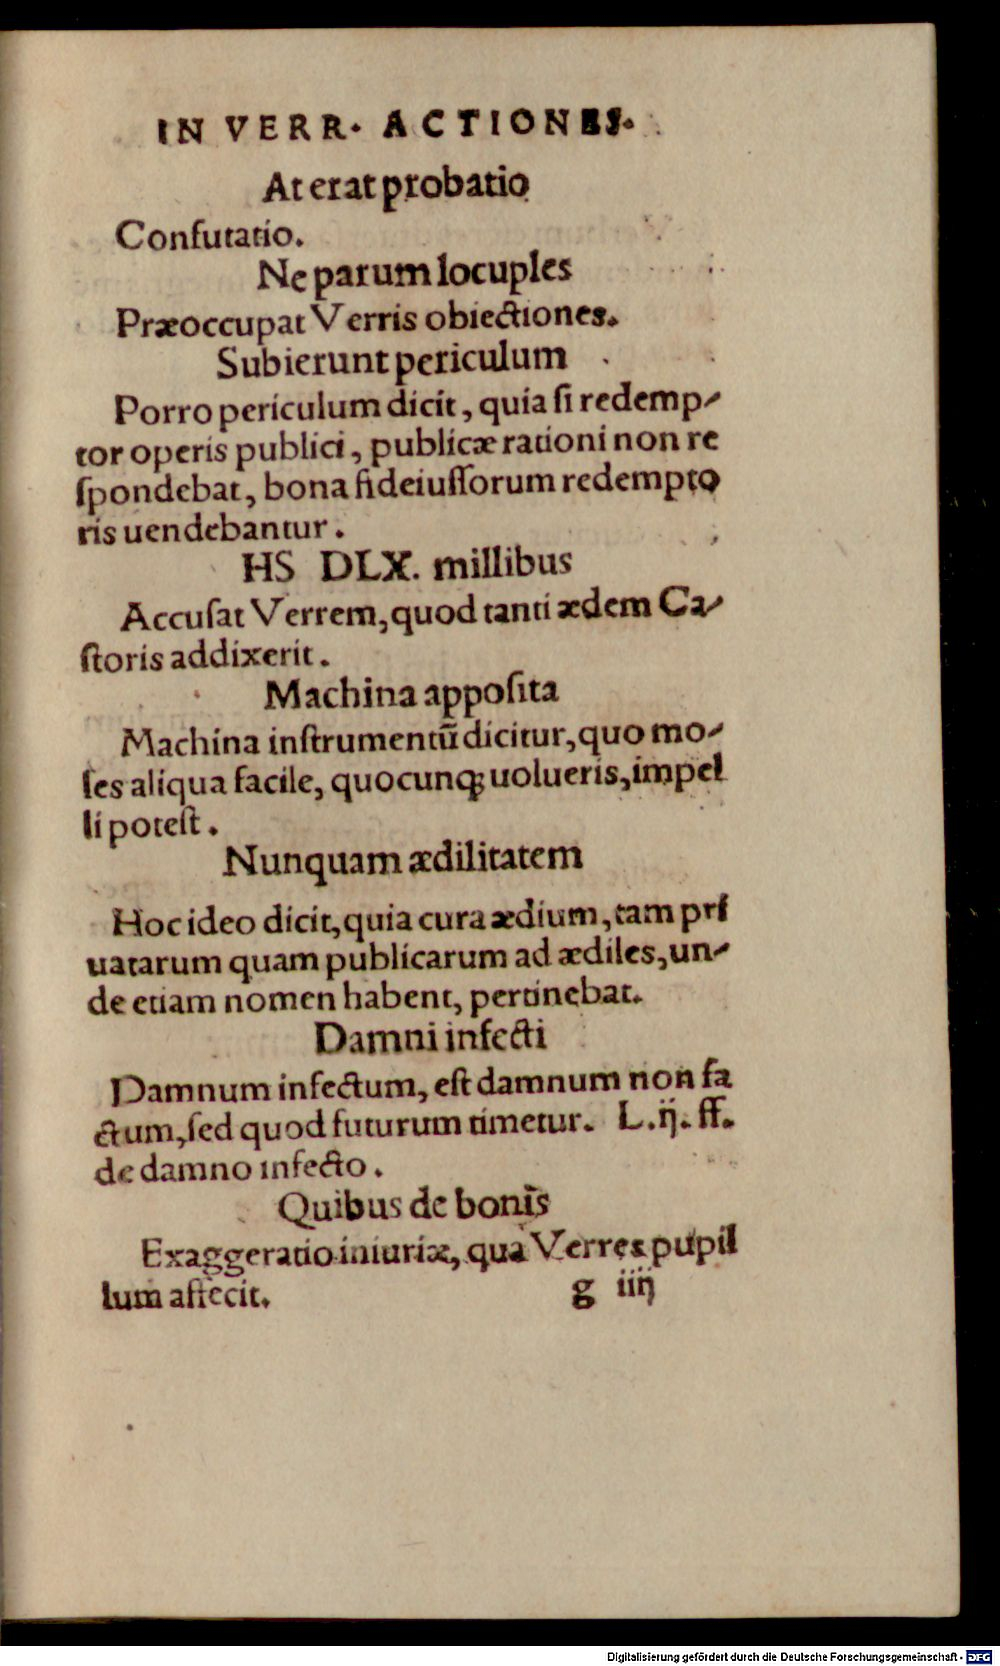 IN VERR. ACTIONES.
At erat probatio
Confutatio.
Ne parum locuples
Præoccupat Verris obiectiones.
Subierunt periculum
Porro periculum dicit, quia ſi redemp-
tor operis publici, publicæ rationi non re
ſpondebat, bona fideiuſſorum redempto
ris uendebantur.
HS DLX. millibus
Accuſat Verrem, quod tanti ædem Ca-
ſtoris addixerit.
Machina appoſita
Machina inſtrumentũ dicitur, quo mo-
les aliqua facile, quocunqꝫ uolueris, impel
li poteſt.
Nunquam ædilitatem
Hoc ideo dicit, quia cura ædium, tam pri
uatarum quam publicarum ad ædiles, un-
de etiam nomen habent, pertinebat.
Damni infecti
Damnum infectum, eſt damnum non fa
ctum, ſed quod futurum timetur. L.ij. ff.
de damno infecto.
Quibus de bonis
Exaggeratio iniuriæ, qua Verres pupil
lum affecit.
g iiij
Digitalisierung gefördert durch die Deutsche Forschungsgemeinschaft - DFG